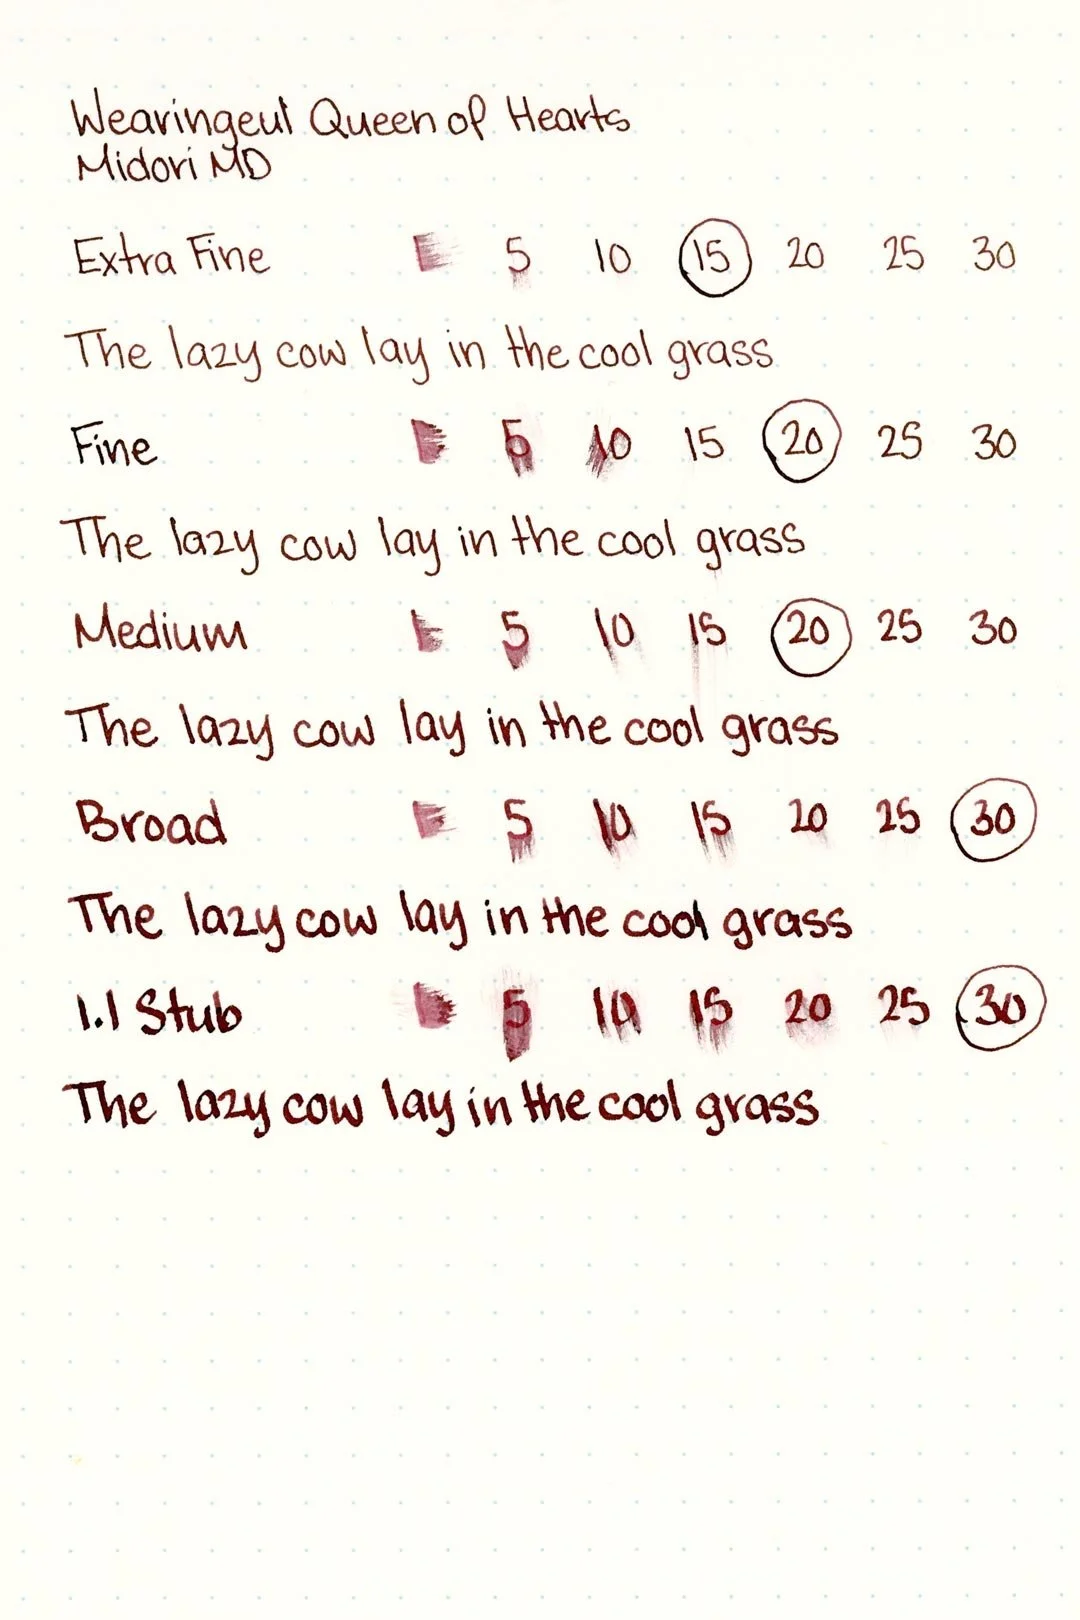 Wearingeul Queen of Hearts
Midori MD
Extra Fine 5 10 15 20 25 30
The lazy cow lay in the cool grass
Fine 5 10 15 20 25 30
The lazy cow lay in the cool grass
Medium 5 10 15 20 25 30
The lazy cow lay in the cool grass
Broad 5 10 15 20 25 30
The lazy cow lay in the cool grass
1.1 Stub 5 10 15 20 25 30
The lazy cow lay in the cool grass